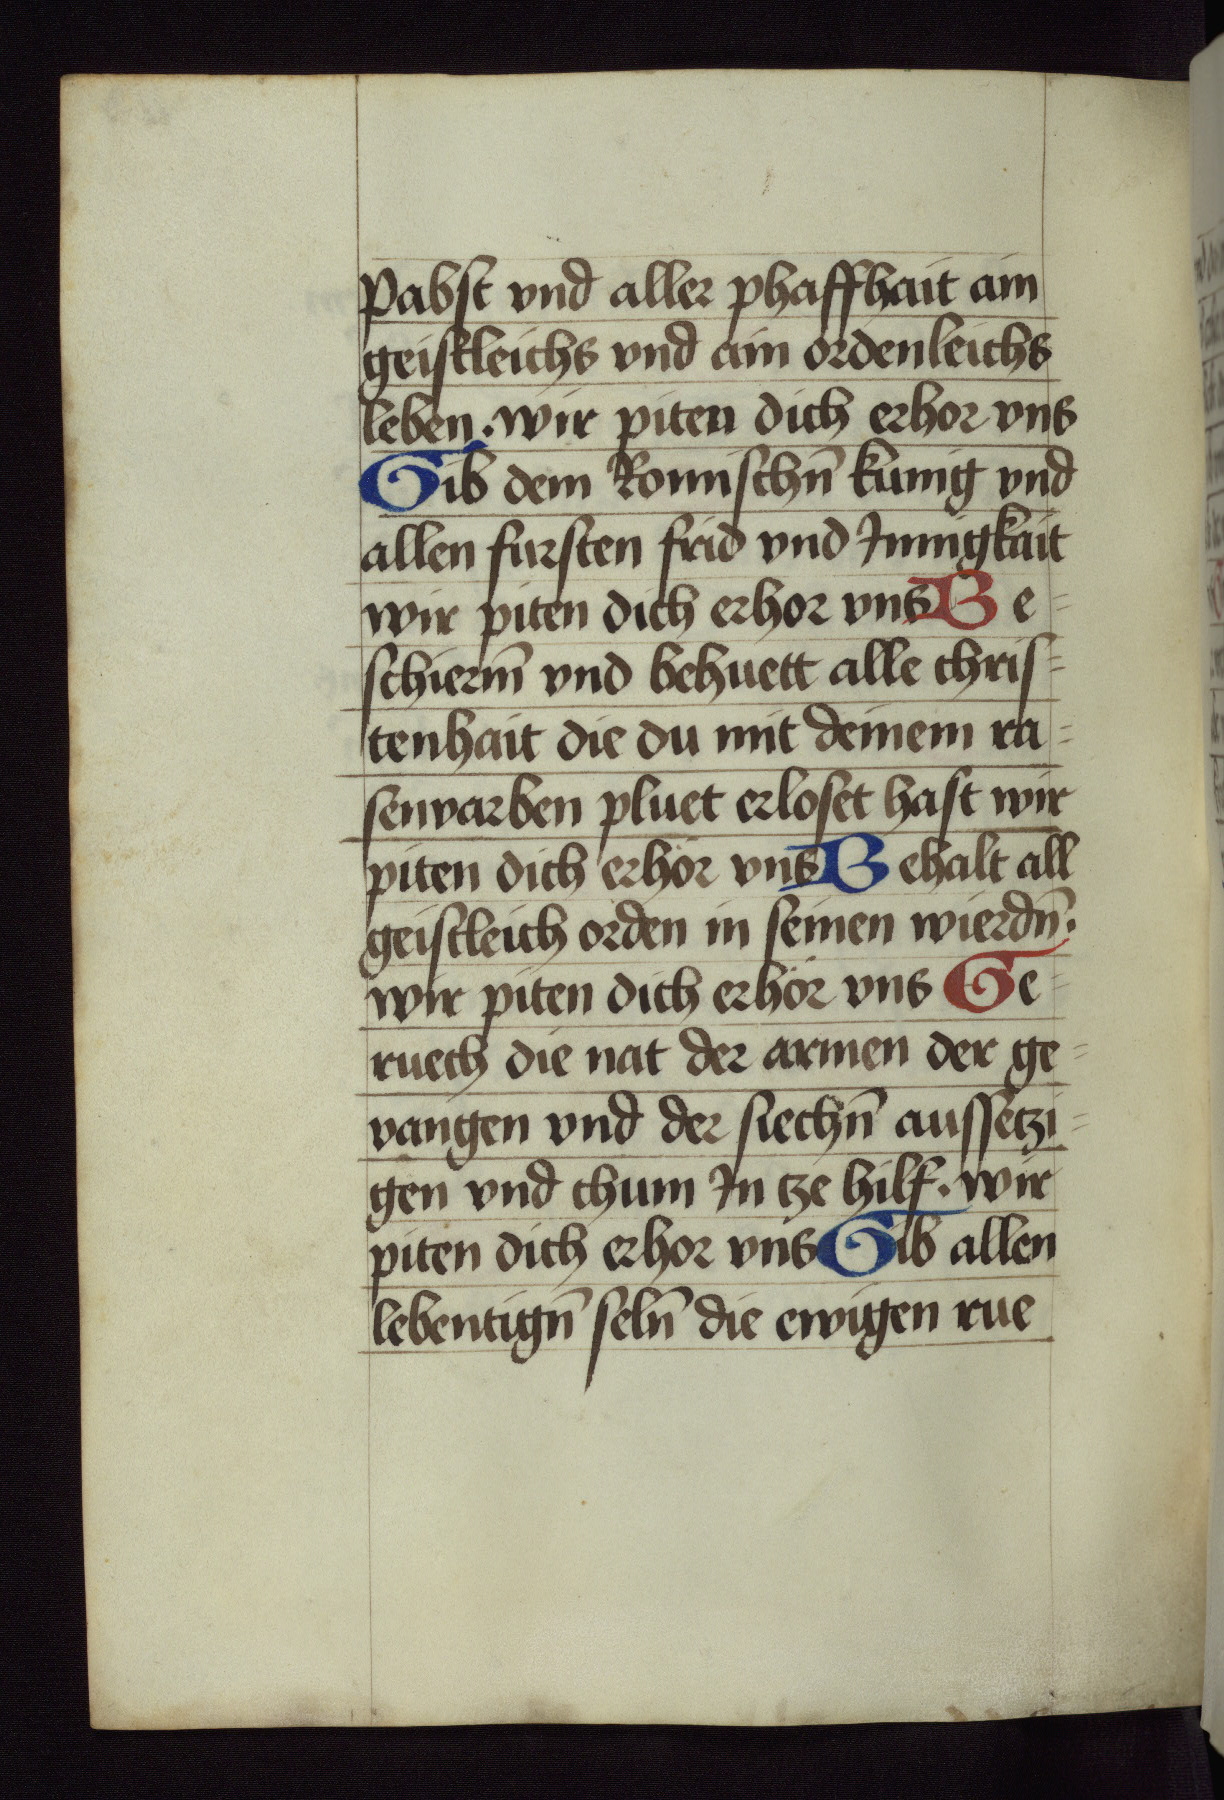 Pabst vnd aller phaffhait ain
geistleichs vnd ain ordenleichs
leben. wir piten dich erhor vns
Gib dem Romischn̄ kunig vnd
allen fursten frid vnd Jnnigkait
wir piten dich erhor vns Be=
schierm̄ vnd behuett alle chris=
tenhait die du mit deinem ra=
senvarben pluet erloset hast wir
piten dich erhör vns Behalt all
geistleich orden in seinen wierdn̄.
wir piten dich erhör vns Ge=
ruech die nat der armen der ge=
vangen vnd der siechn̄ aussetzi=
gen vnd chum Jn tze hilf. wir
piten dich erhor vns Gib allen
lebentign̄ seln̄ die ewigen rue